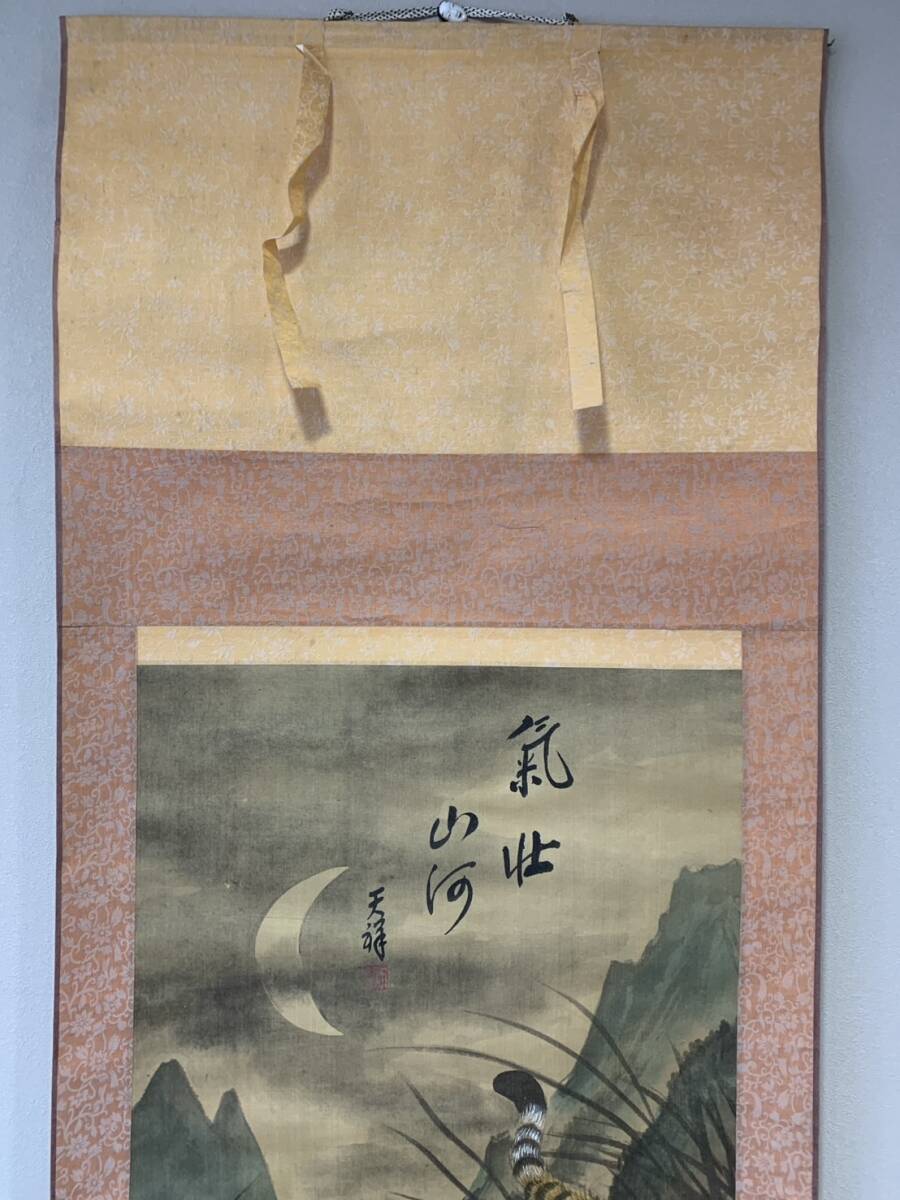 氣壯
山河
天祥